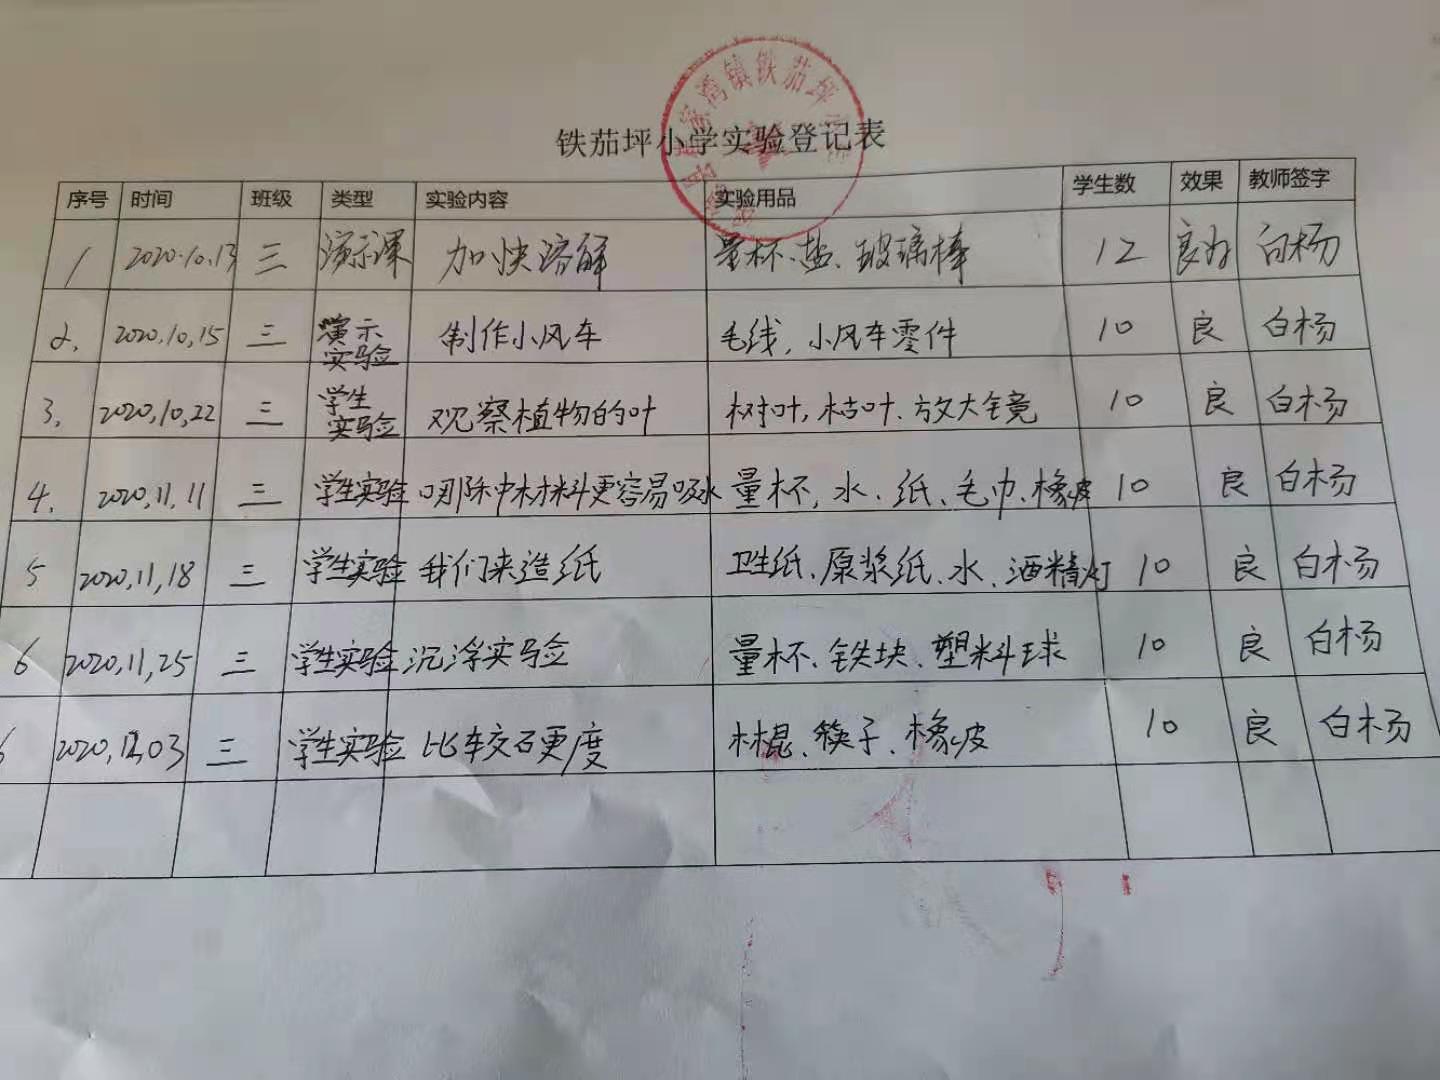 铁茄坪小学实验登记表
序号 时间 班级 类型 实验内容 实验用品 学生数 效果 教师签字
1 2020.10.13 三 演示课 加快溶解 量杯、盐、玻璃棒 12 良好 白杨
2. 2020.10.15 三 演示实验 制作小风车 毛线，小风车零件 10 良 白杨
3. 2020.10.22 三 学生实验 观察植物的叶 树叶，枯叶、放大镜 10 良 白杨
4. 2020.11.11 三 学生实验 哪种材料更容易吸水 量杯，水、纸、毛巾、橡皮 10 良 白杨
5 2020.11.18 三 学生实验 我们来造纸 卫生纸、原浆纸、水、酒精灯 10 良 白杨
6 2020.11.25 三 学生实验 沉浮实验 量杯、铁块、塑料球 10 良 白杨
6 2020.12.03 三 学生实验 比较硬度 木棍、筷子、橡皮 10 良 白杨
湾镇铁茄坪